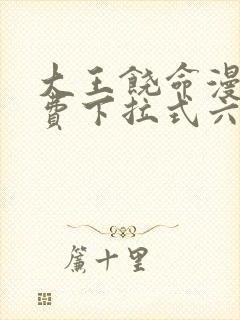 大王饶命漫
费下拉式六
簾十里